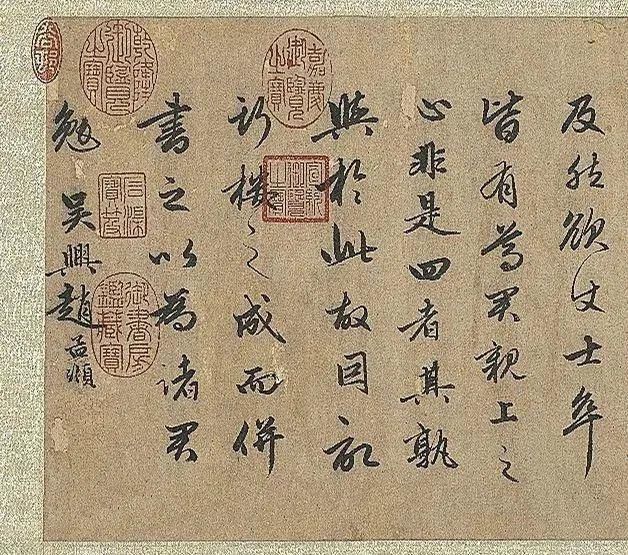 及然欲使士卒
皆有尊君親上之
心非是四者其孰
與於此故因記
新樓之成而併
書之以為諸君
勉吳興趙孟頫
嘉慶御覽之寶
宣統御覽之寶
乾隆御覽之寶
石渠寶笈
御書房鑑藏寶